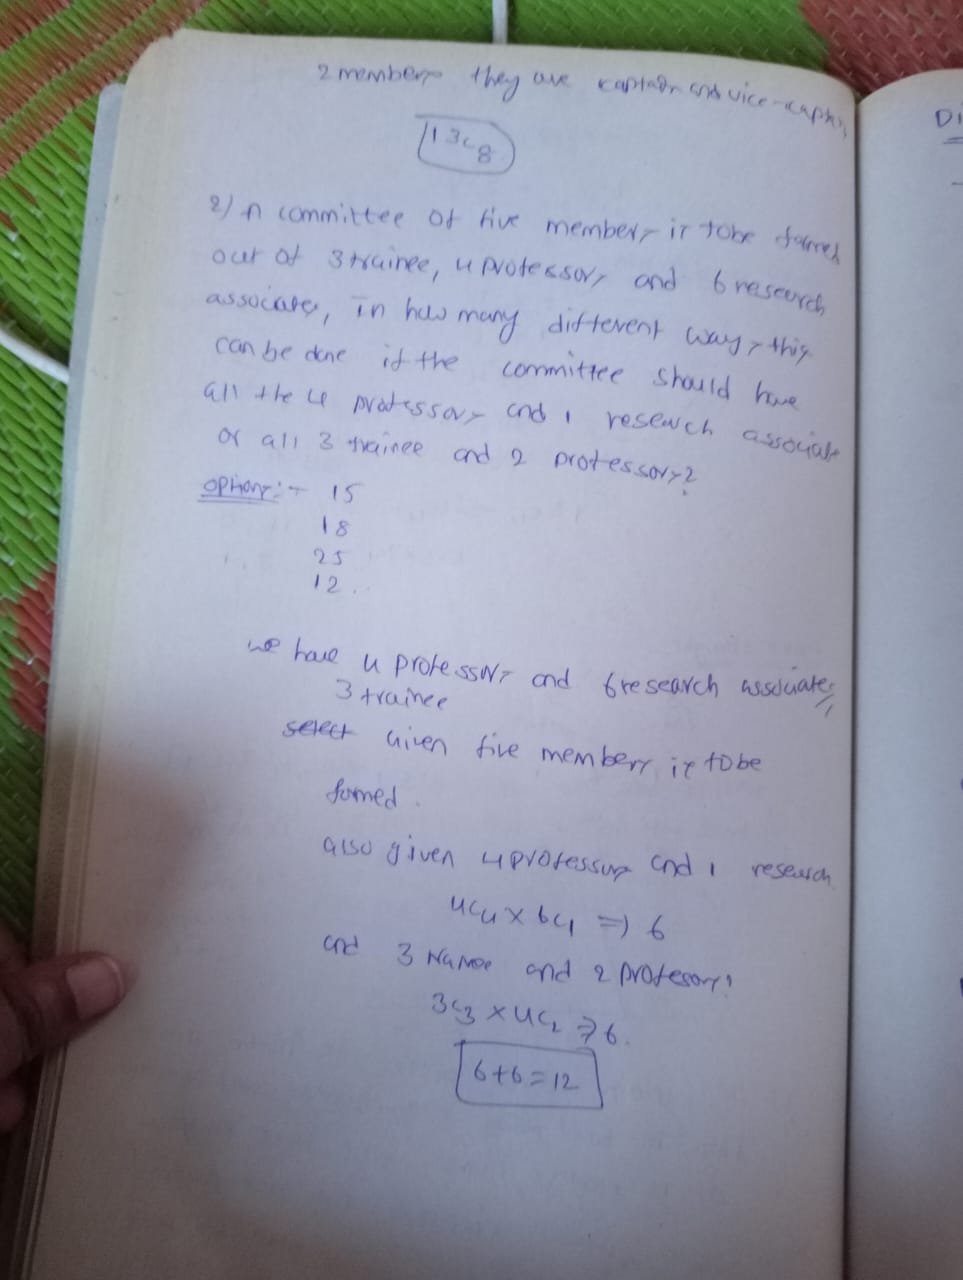 2 members they are captain and vice-captain
13c8
2) A committee of five members is to be formed
out of 3 trainee, 4 professors and 6 research
associates, in how many different ways this
can be done if the committee should have
all the 4 professors and 1 research associate
or all 3 trainee and 2 professors?
options:- 15
18
25
12.
we have 4 professors and 6 research associates,
3 trainee
select Given five members is to be
formed.
also given 4 professors and 1 research
4c4 x 6c1 => 6
and 3 trainee and 2 professors!
3c3 x 4c2 => 6.
6+6=12
Di